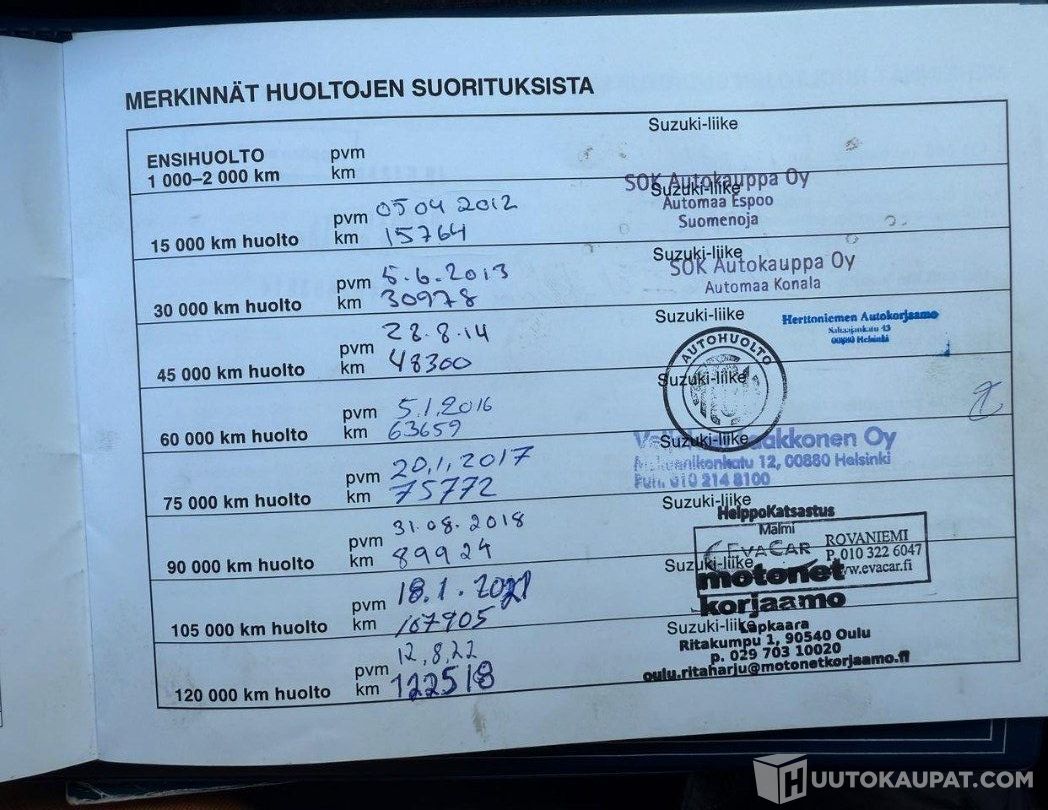 MERKINNÄT HUOLTOJEN SUORITUKSISTA
ENSIHUOLTO pvm Suzuki-liike
1 000–2 000 km km
SOK Autokauppa Oy
Suzuki-liike
Automaa Espoo
Suomenoja
pvm 05 04 2012
15 000 km huolto km 15764
Suzuki-liike
SOK Autokauppa Oy
Automaa Konala
pvm 5.6.2013
30 000 km huolto km 30978
Suzuki-liike
Herttoniemen Autokorjaamo
00880 Helsinki
pvm 28.8.14
45 000 km huolto km 48300
AUTOHUOLTO
Suzuki-liike
pvm 5.1.2016
60 000 km huolto km 63659
Suzuki-liike
Oy
12, 00880 Helsinki
Puh. 010 214 8100
pvm 20.1.2017
75 000 km huolto km 75772
Suzuki-liike
HelppoKatsastus
Malmi
pvm 31.08.2018
90 000 km huolto km 89924
EVACAR ROVANIEMI
P. 010 322 6047
www.evacar.fi
Suzuki-liike
pvm 18.1.2021
105 000 km huolto km 107905
motonet
korjaamo
Suzuki-liike
Lapkaara
Ritakumpu 1, 90540 Oulu
p. 029 703 10020
oulu.ritaharju@motonetkorjaamo.fi
pvm 12.8.22
120 000 km huolto km 122518
HUUTOKAUPAT.COM